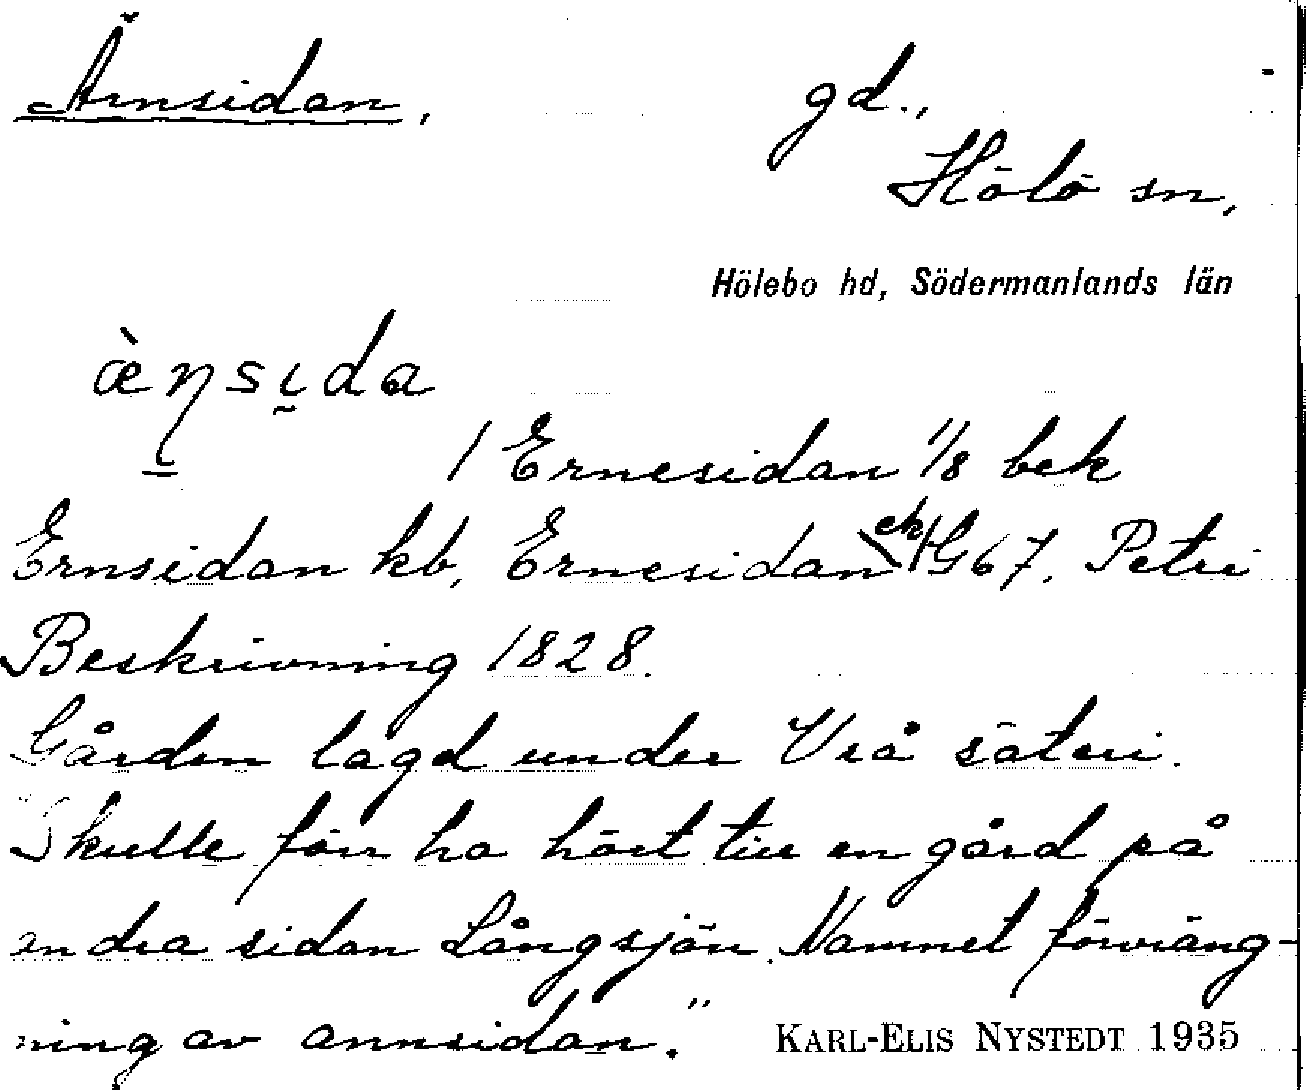 Ärnsidan, gd.,
Hölö sn,
Hölebo hd, Södermanlands län
æ̀ṇsida
1 Ernesidan 1/8 bek
Ernsidan kb, Ernesidan ek G67. Petri
Beskrivning 1828.
Gården lagd under Vrå säteri.
Skulle förr ha hört till en gård på
andra sidan Långsjön. Namnet förväng-
ning av annsidan."
KARL-ELIS NYSTEDT 1935